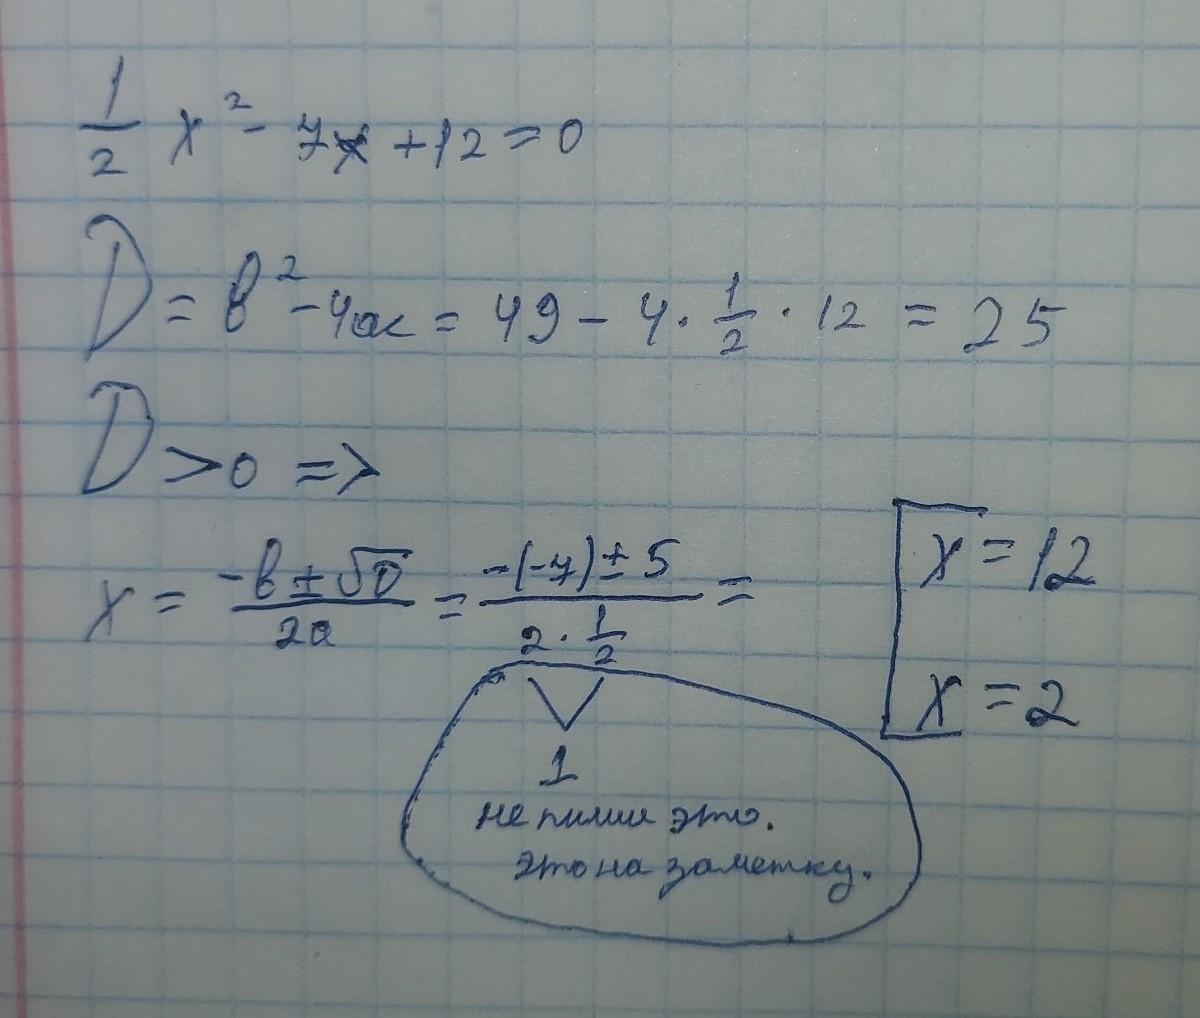 1/2 x² - 7x + 12 = 0
D = b² - 4ac = 49 - 4 · 1/2 · 12 = 25
D > 0 =>
x = (-b ± √D)/(2a) = (-(-7) ± 5)/(2 · 1/2) =
x = 12
x = 2
1
не пиши это.
это на заметку.